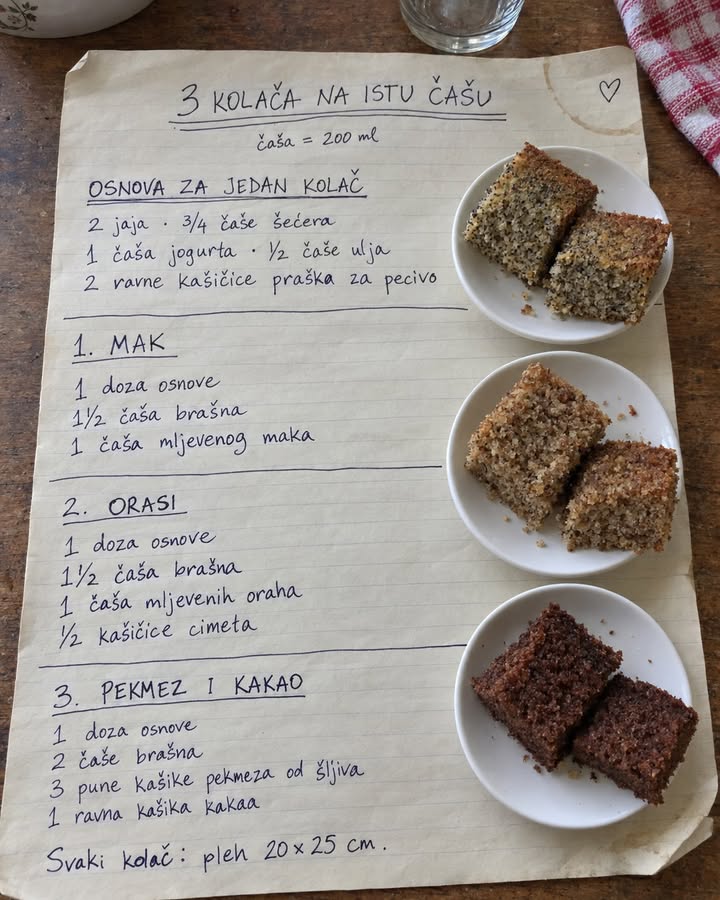 3 KOLAČA NA ISTU ČAŠU
čaša = 200 ml
OSNOVA ZA JEDAN KOLAČ
2 jaja · 3/4 čaše šećera
1 čaša jogurta · 1/2 čaše ulja
2 ravne kašičice praška za pecivo
1. MAK
1 doza osnove
1 1/2 čaša brašna
1 čaša mljevenog maka
2. ORASI
1 doza osnove
1 1/2 čaša brašna
1 čaša mljevenih oraha
1/2 kašičice cimeta
3. PEKMEZ I KAKAO
1 doza osnove
2 čaše brašna
3 pune kašike pekmeza od šljiva
1 ravna kašika kakaa
Svaki kolač: pleh 20 x 25 cm.